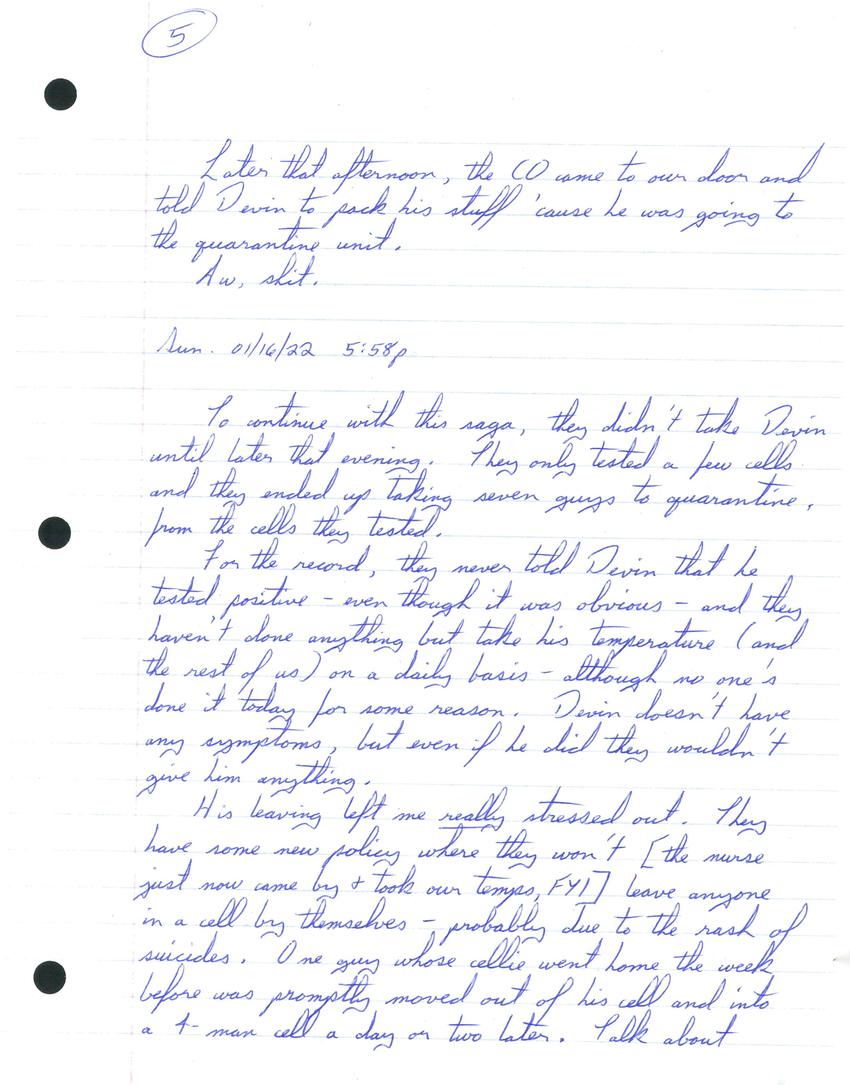 5
Later that afternoon, the CO came to our door and
told Devin to pack his stuff 'cause he was going to
the quarantine unit.
Aw, shit.
Sun. 01/16/22 5:58p
To continue with this saga, they didn't take Devin
until later that evening. They only tested a few cells
and they ended up taking seven guys to quarantine,
from the cells they tested.
For the record, they never told Devin that he
tested positive - even though it was obvious - and they
haven't done anything but take his temperature (and
the rest of us) on a daily basis - although no one's
done it today for some reason. Devin doesn't have
any symptoms, but even if he did they wouldn't
give him anything.
His leaving left me really stressed out. They
have some new policy where they won't [the nurse
just now came by & took our temps, FYI] leave anyone
in a cell by themselves - probably due to the rash of
suicides. One guy whose cellie went home the week
before was promptly moved out of his cell and into
a 4-man cell a day or two later. Talk about